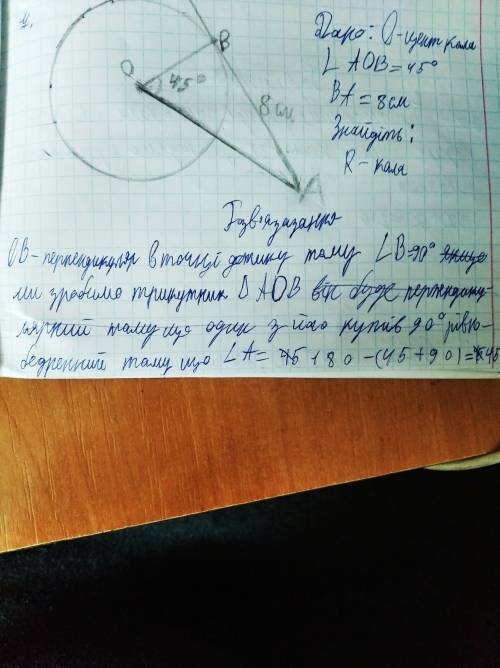 4.
B
O
45°
8см
A
Дано: О-центр кола
∟ AOB=45°
BA = 8см
Знайдіть:
R- кола
Розв'язазання
OB-перпендикуляр в точці дотику тому ∟B=90°
ми зробимо трикутник ΔAOB він буде перпендику-
лярний тому що один з його кутів 90° рівно-
бедренний тому що ∟A= 180-(45+90)=45